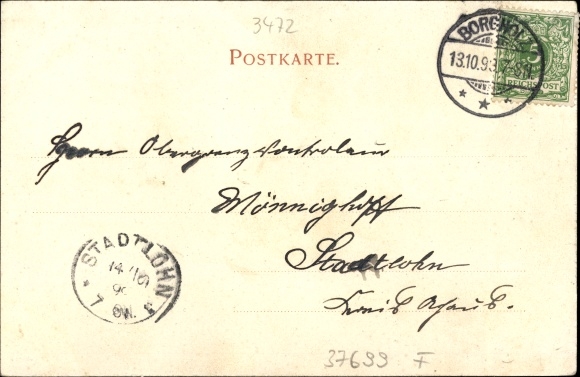 3472
POSTKARTE.
BORGHO
13.10.9
REICHSPOST
Herrn Obergrenzkontroleur
Mönnighoff
Stadtlohn
Kreis Ahaus.
STADTLOHN
14
37699 F